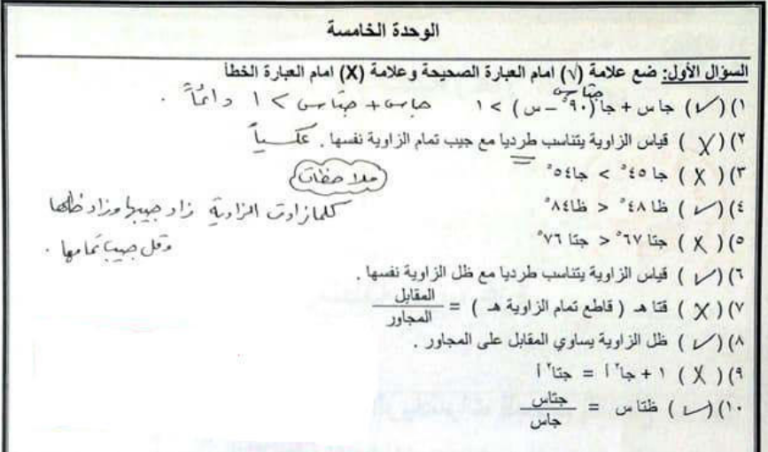 الوحدة الخامسة
السؤال الأول: ضع علامة (√) امام العبارة الصحيحة وعلامة (X) امام العبارة الخطأ
جتا س
١) (✓) جا س + جا (٩٠° – س) > ١ جاس + جتاس > ١ دائماً .
٢) (X) قياس الزاوية يتناسب طرديا مع جيب تمام الزاوية نفسها . عكسياً
٣) (X) جا ٤٥° > جا٥٤°
ملاحظات
٤) (✓) ظا ٤٨° < ظا٨٤°
كلما زادت الزاوية زاد جيبها وزاد ظلها
٥) (X) جتا ٦٧° < جتا ٧٦°
وقل جيب تمامها .
٦) (✓) قياس الزاوية يتناسب طرديا مع ظل الزاوية نفسها .
٧) (X) قتا هـ ( قاطع تمام الزاوية هـ ) = المقابل / المجاور
٨) (✓) ظل الزاوية يساوي المقابل على المجاور .
٩) (X) ١ + جا٢ أ = جتا٢ أ
١٠) (✓) ظتا س = جتاس / جاس